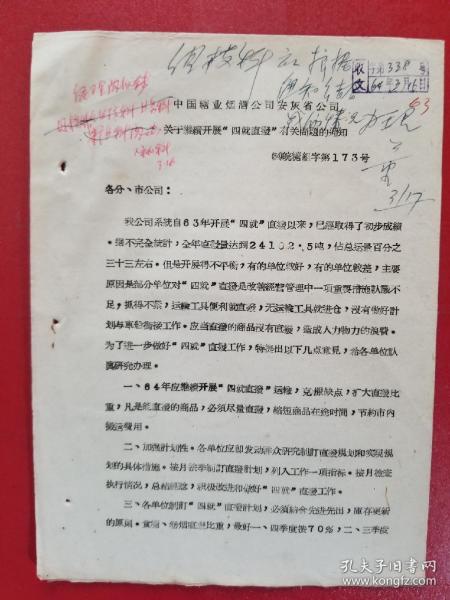 收文 字第338号
64年3月16日
中国糖业烟酒公司安徽省公司
关于继续开展“四就直拨”有关问题的通知
(64)皖糖组字第173号
各分、市公司：
我公司系统自63年开展“四就”直拨以来，已经取得了初步成绩
。据不完全统计，全年直拨量达到24102.5吨，佔总运量百分之
三十三左右。但是开展得不平衡，有的单位较好，有的单位较差，主要
原因是部分单位对“四就”直拨是改善经营管理中一项重要措施认识不
足，抓得不紧，运输工具便利就直拨，无运输工具就进仓，没有做好计
划与车船衔接工作。应当直拨的商品没有直拨，造成人力物力的浪费。
为了进一步做好“四就”直拨工作，特提出以下几点意见，希各单位认
真研究办理。
一、64年应继续开展“四就直拨”运输，克服缺点，扩大直拨比
重，凡是能直拨的商品，必须尽量直拨，缩短商品在途时间，节约市内
搬运费用。
二、加强计划性。各单位应即发动群众研究制订直拨规划和实现规
划的具体措施。按月按季制订直拨计划，列入工作一项指标。按月检查
执行情况，总结经验，积极改进和做好“四就”直拨工作。
三、各单位制订“四就”直拨计划，必须结合先进先出，库存更新
的原则。食糖、卷烟直拨比重，最好一、四季度按70%，二、三季度
3/17
孔夫子旧书网